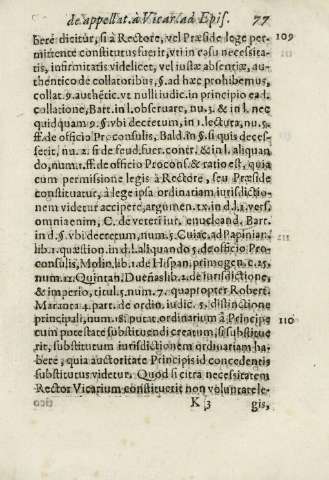 de appellat. à Vicar. ad Epis. 77
berè dicitur, si à Rectore, vel Præside lege per- 109
mittente constitutus fuerit, vti in casu necessita-
tis, infirmitatis videlicet, vel iustæ absentiæ, au-
thentico de collatoribus, §. ad hæc prohibemus,
collat. 9. authētic. vt nulli iudic. in principio ead.
collatione, Bart. in l. obseruare, nu. 3. & in l. nec
quidquam 9. §. vbi decretum, in 1. lectura, nu. 5.
ff. de officio Proconsulis, Bald. in §. si quis deces-
serit, nu. 2. si de feud. fuer. contr. & in l. aliquan
do, num. 1. ff. de officio Procons. & ratio est, quia
cum permissione legis à Rectore, seu Præside
constituatur, à lege ipsa ordinariam iurisdictio-
nem videtur accipere, argumen. tx. in d. l. 2. vers.
omnia enim, C. de veteri iur. enucleand. Bart.
in d. §. vbi decretum, num. 5. Cuiac. ad Papiniar.
lib. 1. quæstion. in d. l. aliquando 5. de officio Pro-
consulis, Molin. lib. 1. de Hispan. primogen. c. 25.
num. 12. Quintan. Dueñas lib. 2. de iurisdictione,
& imperio, titul. 5. num. 7. quapropter Robert.
Maranta 4. part. de ordin. iudic. 5. distinctione
principali, num. 18. putat. ordinarium à Principe 110
cum potestate substituendi creatum, si substitue
rit, substitutum iurisdictionem ordinariam ha-
bere, quia auctoritate Principis id concedentis
substitutus videtur. Quod si citra necessitatem
Rector Vicarium constituerit non voluntate le-
K 3 gis,